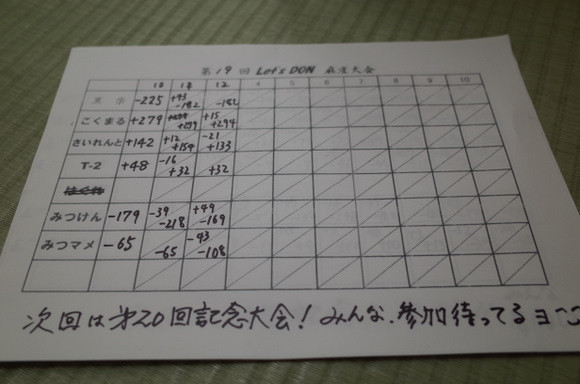 第19回 Let's DON 麻雀大会
10 11 12 4 5 6 7 8 9 10
天示 -225 +43 -182 -182
こくまる +279 +279 +15 +294
さいれんと +142 +12 +154 -21 +133
T-2 +48 -16 +32 +32
みつけん -179 -39 -218 +49 -169
みつマメ -65 -65 -43 -108
次回は第20回記念大会!みんな、参加待ってるヨ〜